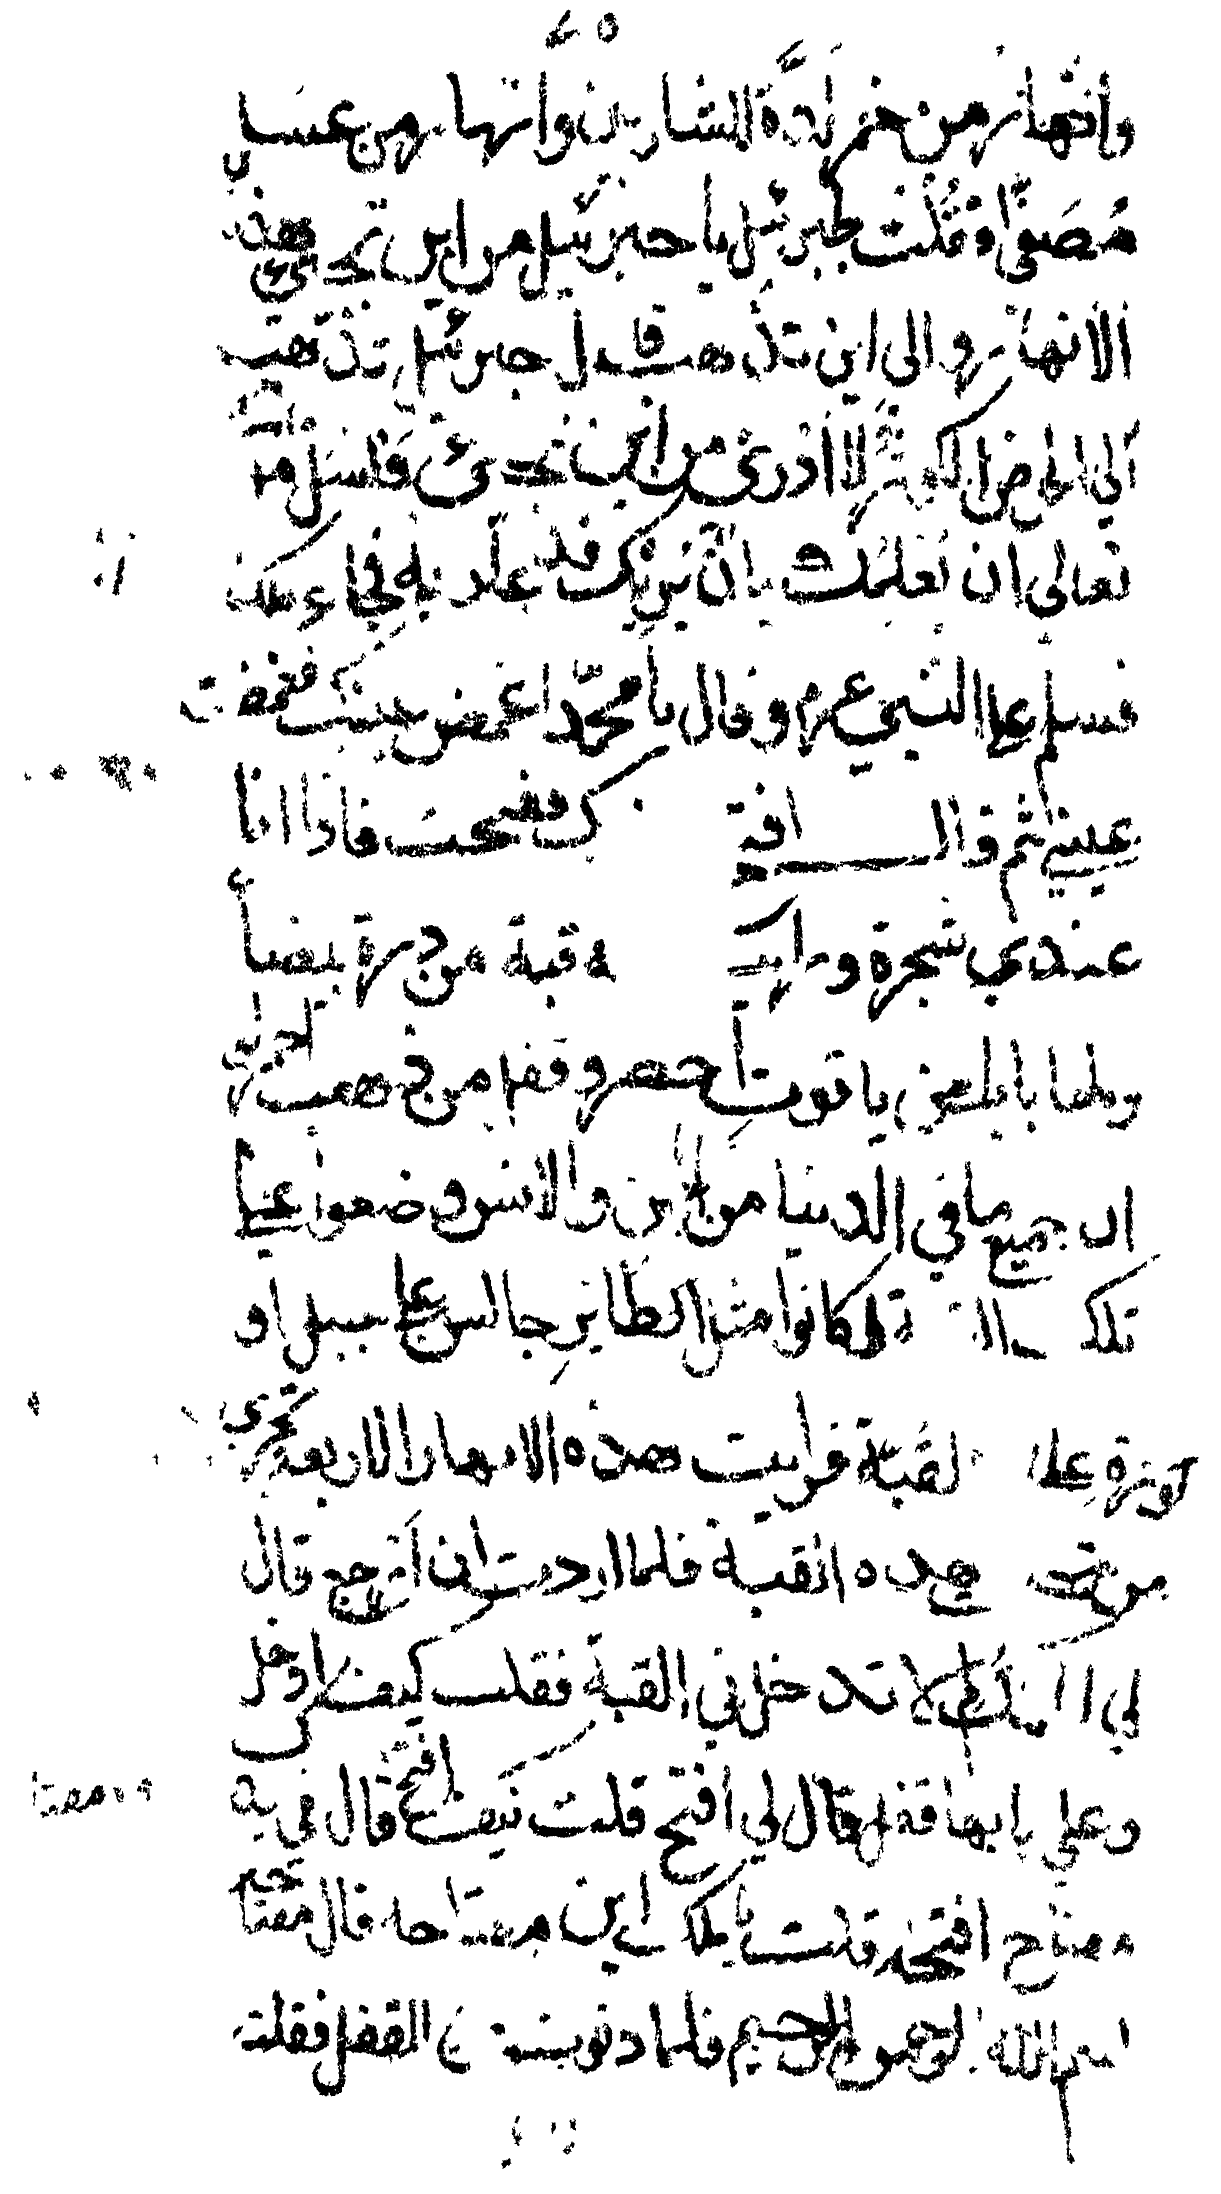 وانهار من خمر لذة للشاربين وانهار من عسل
مصفى فقلت لجبرئيل يا جبرئيل من اين تجيئ هذه
الانهار والى اين تذهب قال جبرئيل تذهب
الى الحوض الكوثر لا ادري من اين تجيئ فاسئل الله
تعالى ان يعلمك بان يريك فدعا ربه فجاء ملك
فسلم على النبي عم وقال يا محمد اغمض عينيك فغمضت
عيني ثم قال افتح ففتحت فاذا انا
عندي شجرة ورايت قبة من درة بيضا
ولها باب من ياقوت احضر وقفل من ذهب احمر لو
ان جميع ما في الدنيا من الجن والانس وضعوا على
تلك القبة لكانوا مثل الطاير جالس على جبل او
كوزة على القبة فرايت هذه الانهار الاربعة تجري
من تحت هذه القبة فلما اردت ان ارجع قال
لي الملك لم لا تدخل في القبة فقلت كيف ادخل
وعلى بابها قفل قال لي افتح قلت كيف افتح قال في يدك
مفتاح افتحه قلت يا ملك اين مفتاحه قال مفتاحه
بسم الله الرحمن الرحيم فلما دنوت من القفل فقلت